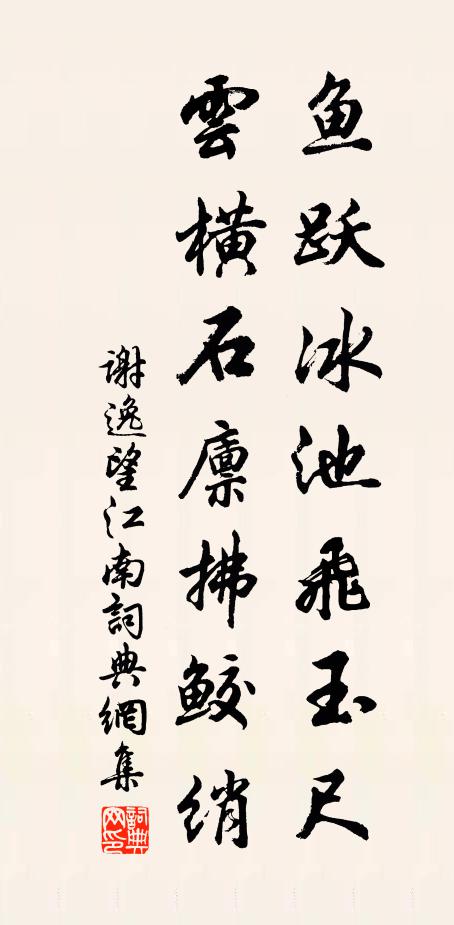 鱼跃冰池飛玉尺
雲横石廪拂鲛绡
谢逸望江南詞典網集
詞典网印